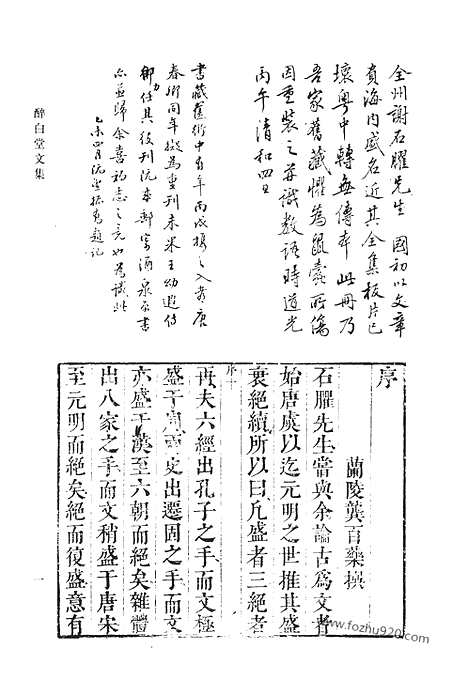 全州謝石臞先生 國初以文章
負海内盛名近其全集板片已
壞粵中轉無傳本 此冊乃
吾家舊藏懼為鼠蠹所傷
因重裝之并識數語時道光
丙午清和四日
書藏舊中有年丙戌携之入都唐
春同年擬為重刊未果王幼遐侍
御任其役刊郵寄酒泉原書
亦並歸余喜初志之克為識此
乙未四月題記
序
蘭陵龔百藥撰
石臞先生嘗與余論古爲文者
始唐虞以迄元明之世推其盛
衰絕續所以曰凡盛者三絕者
序
再夫六經出孔子之手而文極
盛于周史出遷固之手而文
亦盛于漢至六朝而絕矣雜體
出八家之手而文稍盛于唐宋
至元明而絕矣絕而復盛意有
醉白堂文集
一
www.fozhu920.com